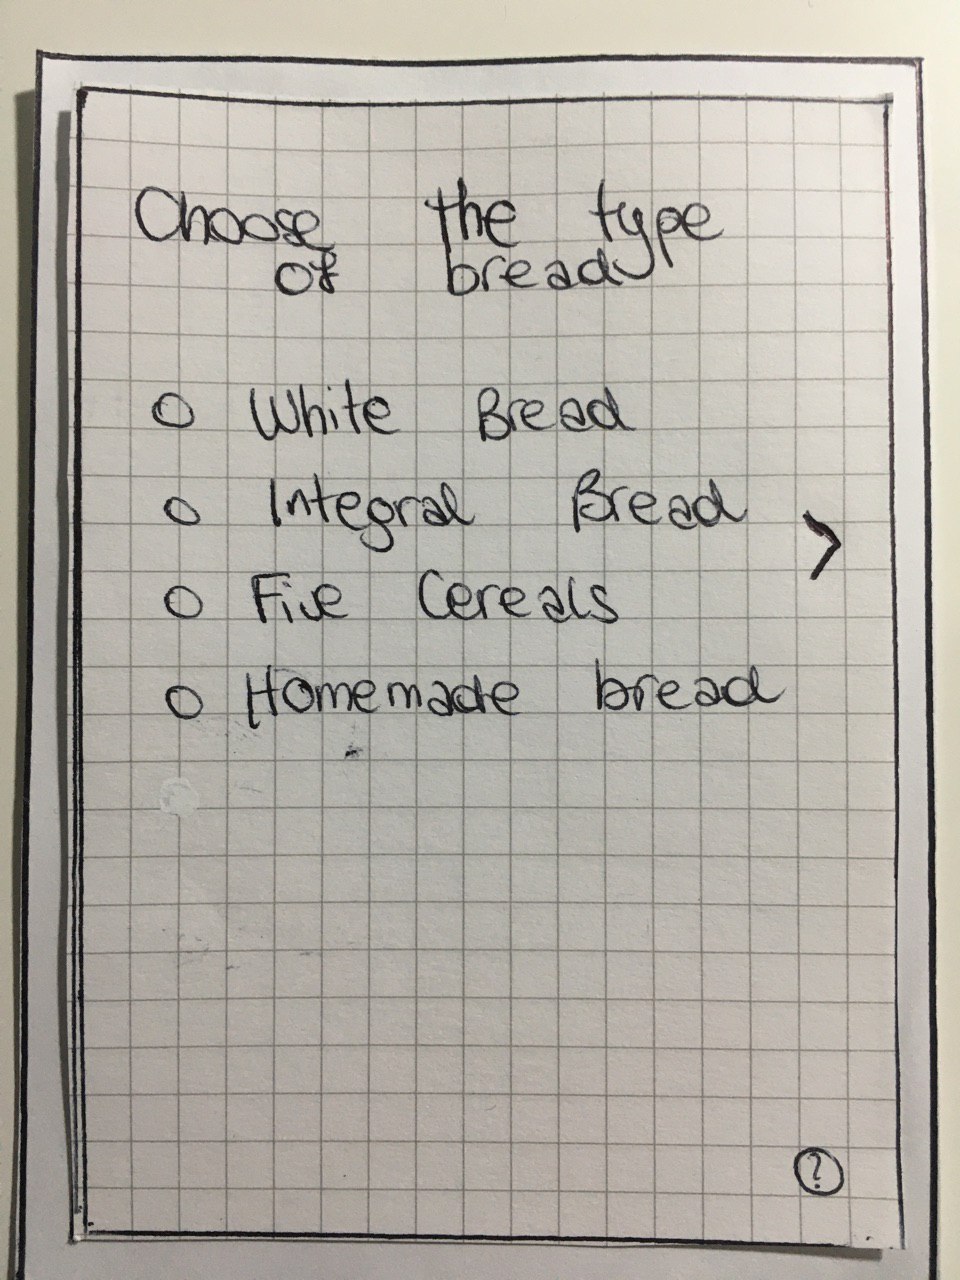 Choose the type
of bread
O White Bread
O Integral Bread
>
O Five Cereals
O Homemade bread
?